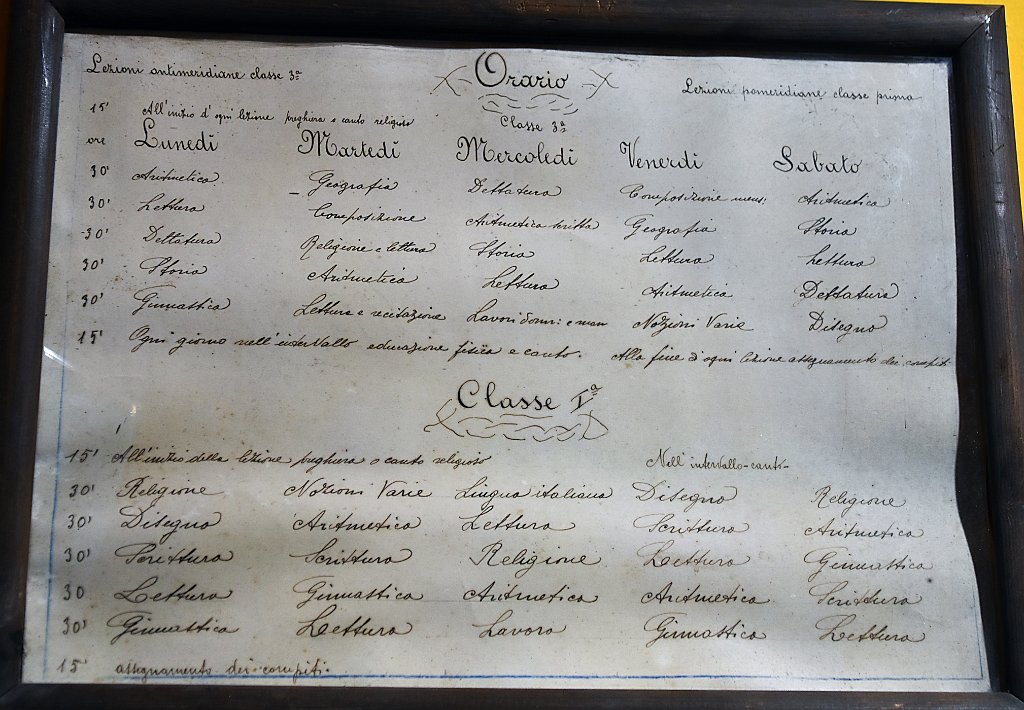 Lezioni antimeridiane classe 3ª
Orario
Lezioni pomeridiane classe prima
Classe 3ª
15' All'inizio d'ogni lezione preghiera e canto religioso
ore Lunedì Martedì Mercoledì Venerdì Sabato
30' Aritmetica Geografia Dettatura Composizione mens: Aritmetica
30' Lettura Composizione Aritmetica scritta Geografia Storia
30' Dettatura Religione e lettura Storia Lettura Lettura
30' Storia Aritmetica Lettura Aritmetica Dettatura
30' Ginnastica Lettura e recitazione Lavori donn: e man Nozioni Varie Disegno
15' Ogni giorno nell'intervallo educazione fisica e canto. Alla fine d'ogni lezione assegnamento dei compiti
Classe Iª
15' All'inizio della lezione preghiera o canto religioso Nell'intervallo-canto-
30' Religione Nozioni Varie Lingua italiana Disegno Religione
30' Disegno Aritmetica Lettura Scrittura Aritmetica
30' Scrittura Scrittura Religione Lettura Ginnastica
30 Lettura Ginnastica Aritmetica Aritmetica Scrittura
30' Ginnastica Lettura Lavoro Ginnastica Lettura
15' assegnamento dei compiti.